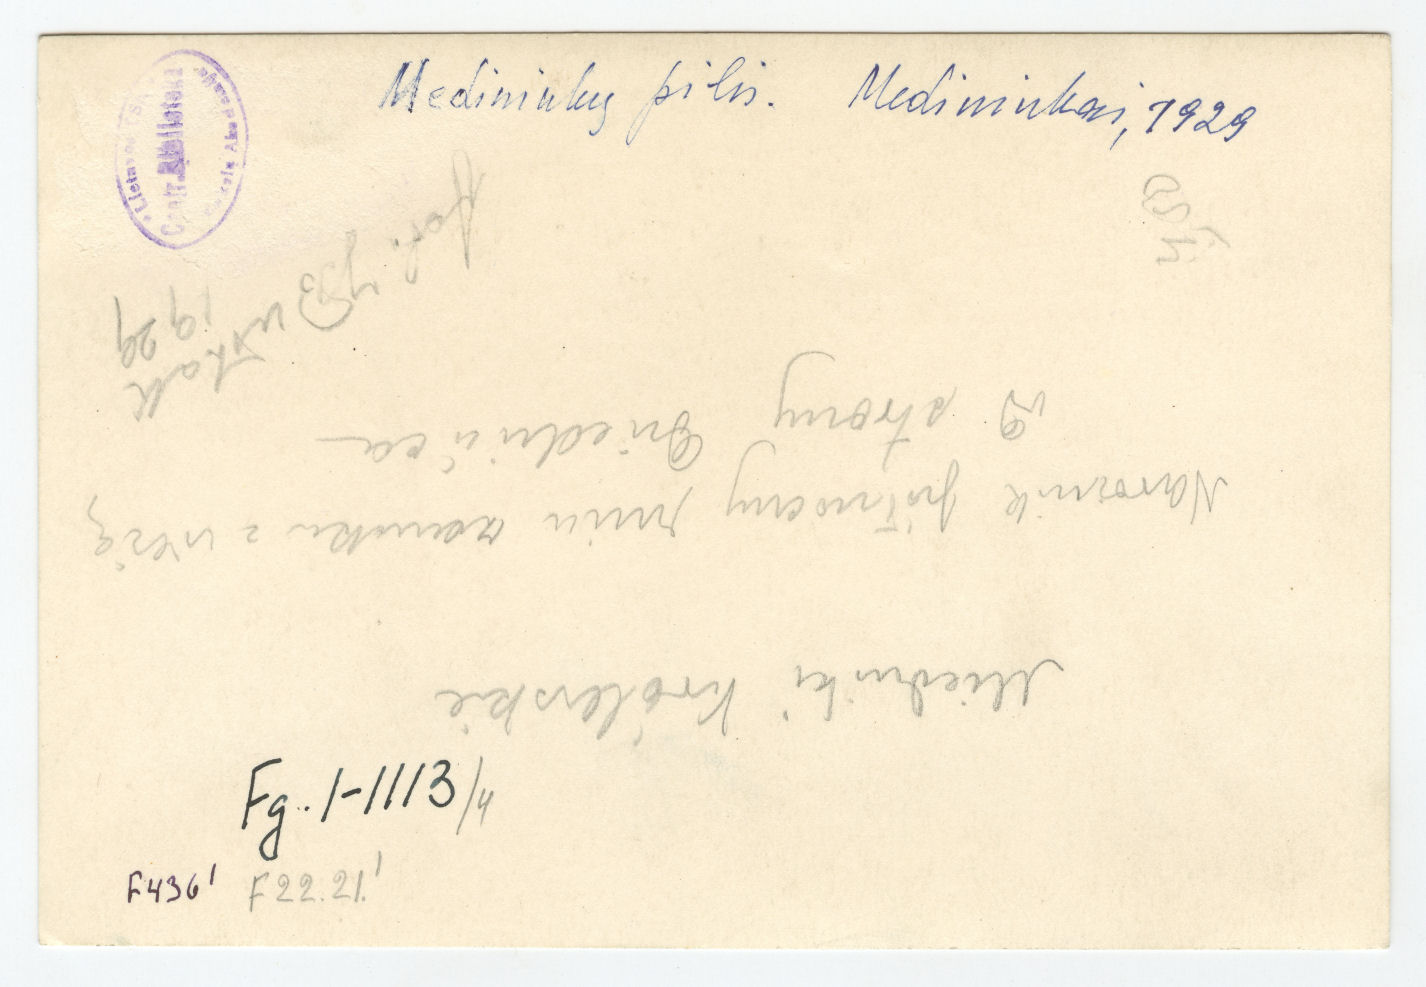 Lietuvos TSR
Centr. Biblioteka
Mokslų Akademija
Medininkų pilis. Medininkai, 1929
fot. J. Bułhak
1929
Miedniki Królewskie
Narożnik północny murów zamku z wieżą
strony
Fg. 1-1113/4
F436' F22.21.'